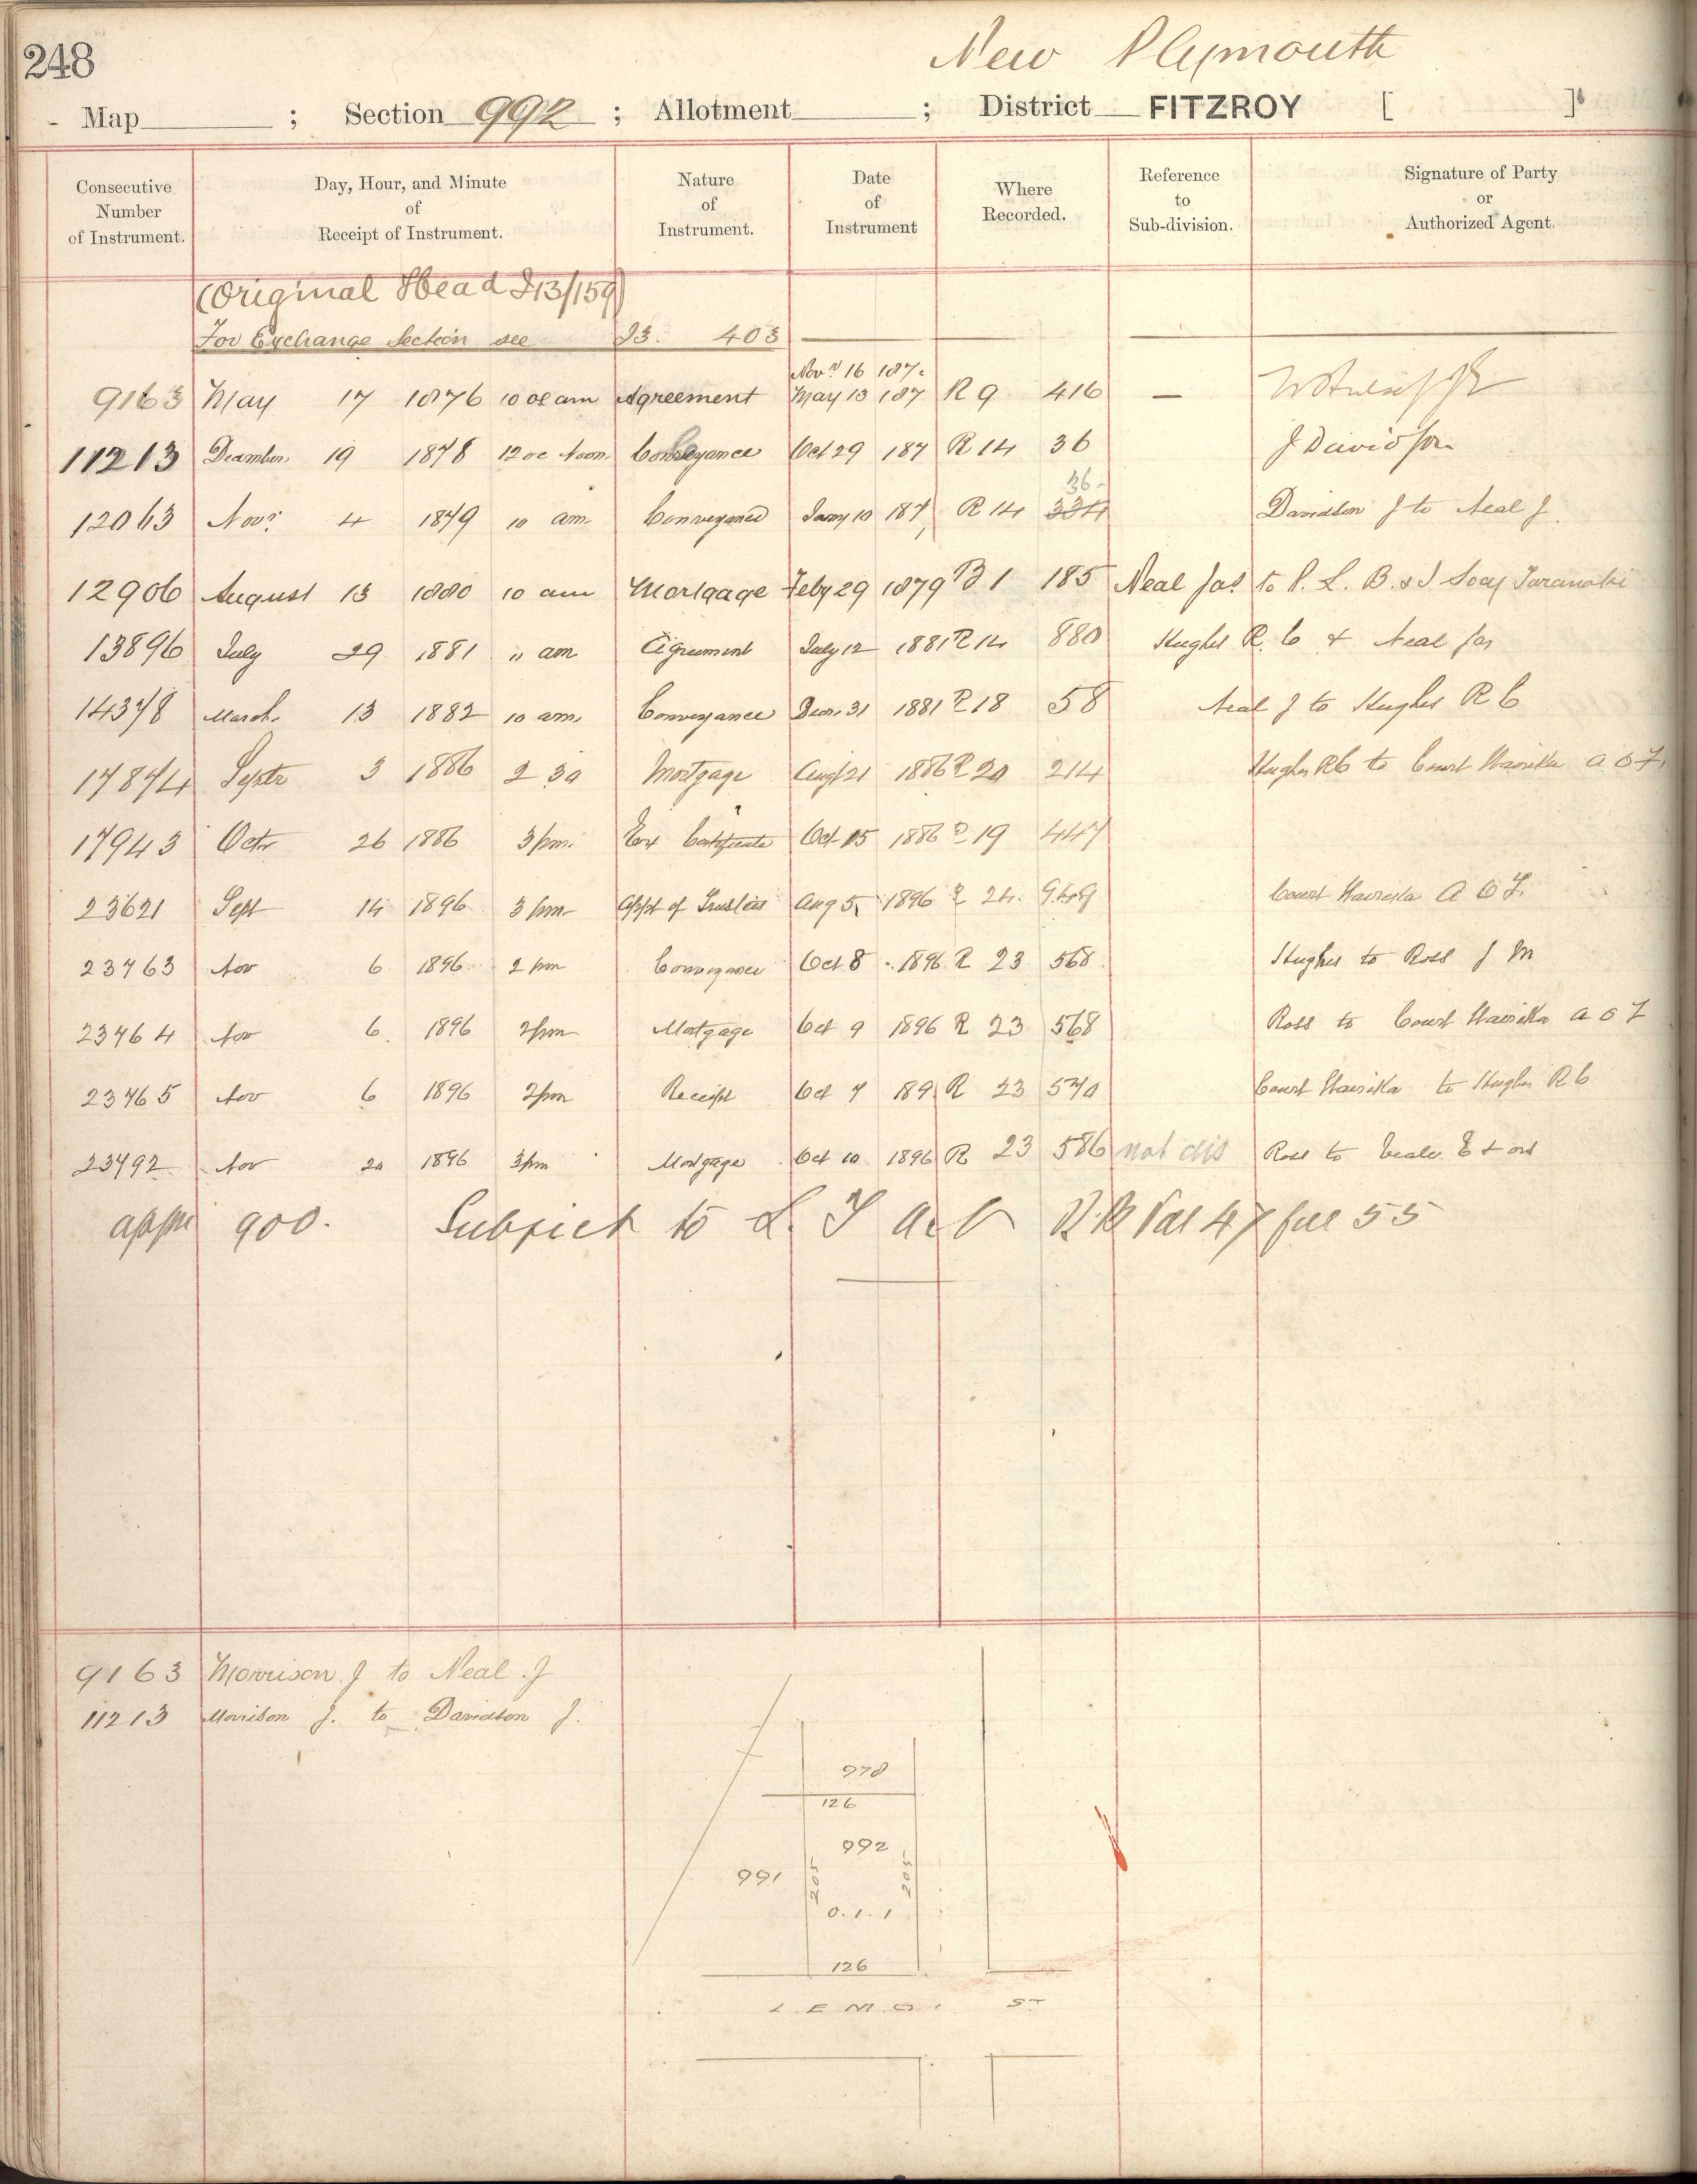 248
New Plymouth
Map ; Section 992 ; Allotment ; District FITZROY [ ]
Consecutive Number of Instrument.
Day, Hour, and Minute of Receipt of Instrument.
Nature of Instrument.
Date of Instrument
Where Recorded.
Reference to Sub-division.
Signature of Party or Authorized Agent.
(Original Head I13/159)
For Exchange Section see I3. 403
Novr 16 187
9163 May 17 1876 10 oc am Agreement May 13 187 R 9 416 —
11213 December 19 1878 12 oc Noon Conveyance Oct 29 187 R 14 36 J Davidson
36
12063 Novr 4 1879 10 am Conveyance Jany 10 187 R 14 334 Davidson J to Neal J.
12906 August 13 1880 10 am Mortgage Feby 29 1879 B 1 185 Neal Jas to P. L. B. & I Socy Taranaki
13896 July 29 1881 11 am Agreement July 12 1881 R 14 880 Hughes R. C & Neal Jas
14378 March 13 1882 10 am Conveyance Decr 31 1881 R 18 58 Neal J to Hughes R C
17874 Septr 3 1886 2 30 Mortgage Augt 21 1886 R 20 214 Hughes RC to Court Hawika A O F.
17943 Octr 26 1886 3 pm Certificate Oct 15 1886 R 19 447
23621 Sept 14 1896 3 pm Appt of Trustees Aug 5 1896 R 24 949 Court Hawika A O F.
23763 Nov 6 1896 2 pm Conveyance Oct 8 1896 R 23 568 Hughes to Ross J M
23764 Nov 6 1896 2pm Mortgage Oct 9 1896 R 23 568 Ross to Court Hawika A O F
23765 Nov 6 1896 2pm Receipt Oct 7 189 R 23 570 Court Hawika to Hughes R C
23792 Nov 20 1896 3pm Mortgage Oct 10 1896 R 23 586 not dis Ross to E & ors
appn 900. Subject to L. T Act R.B Vol 47 fol 55
9163 Morrison J to Neal J
11213 Morrison J. to Davidson J.
978
126
992
991
205
205
0.1.1
126
ST